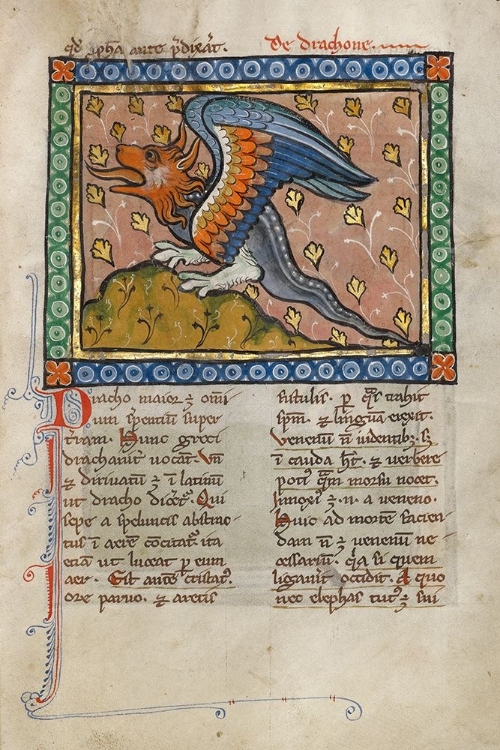 qd̄ ꝓph̄a ante p̄dixāt.
De drachone.
Dracho maior ē omī
um ſpentiū ſuper
t̄ram. Hunc greci
drachanā uocāt. Vn̄
⁊ diriuatū ē ī latinū
ut dracho dicēt. Qui
ſepe a ſpeluncis abſtrac
tus ī aere cōcitāt ita
eciā ut luceat ꝑ eum
aer. Eſt autē criſtatꝰ.
ore paruo. ⁊ artis
fiſtulis. ꝑ q̄s trahit
ſpm̄. ⁊ linguā exerit.
Venenū n̄ uidentibꝫ. sꝫ
ī cauda hт̄. ⁊ uerbere
potiꝰ qm̄ morſu nocet.
Innoxiꝰ ē. n̄. a ueneno.
Huic ad mortē facien
dam n̄ ē uenenū ne
ceſſariū. q̄a ſi quem
ligauit occidit. A quo
nec elephas tutꝰ ē ſui